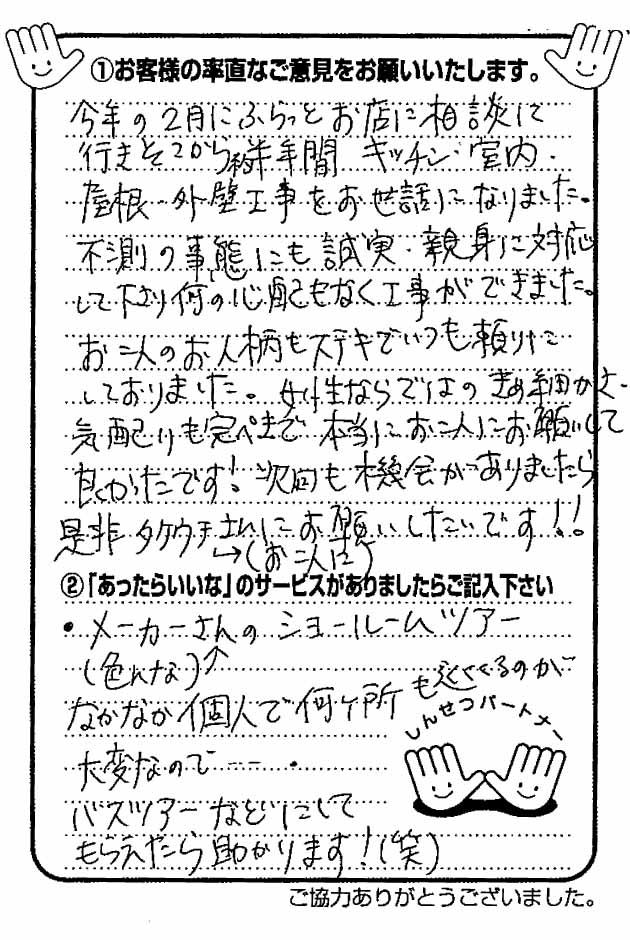 ①お客様の率直なご意見をお願いいたします。
今年の2月にふらっとお店に相談に
行きそこから約半年間 キッチン・室内・
屋根・外壁工事をお世話になりました。
不測の事態にも誠実・親身に対応
して下さり何の心配もなく工事ができました。
お二人のお人柄もステキでいつも頼りに
しておりました。女性ならではのきめ細かさ・
気配りも完ペきで本当にお二人にお願いして
良かったです!次回も機会がありましたら
是非タケウチさんにお願いしたいです!!
→(お二人に)
②「あったらいいな」のサービスがありましたらご記入下さい
・メーカーさんのショールームツアー
(色んな)↑
なかなか個人で何ヶ所も
くるのが
大変なので……
バスツアーなどにして
もらえたら助かります!(笑)
しんせつパートナー
ご協力ありがとうございました。